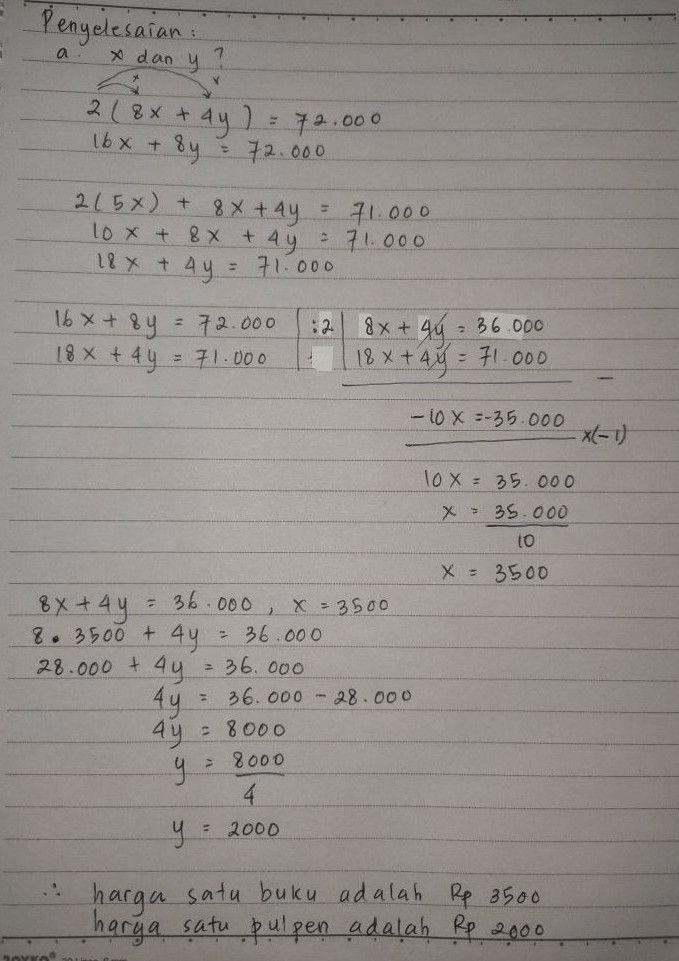 Penyelesaian :
a. x dan y ?
2 ( 8x + 4y ) = 72.000
16x + 8y = 72.000
2 ( 5x ) + 8x + 4y = 71.000
10x + 8x + 4y = 71.000
18x + 4y = 71.000
16x + 8y = 72.000 | :2 | 8x + 4y = 36.000
18x + 4y = 71.000 | : | 18x + 4y = 71.000
−
-10x = -35.000
x(-1)
10x = 35.000
x = 35.000
10
x = 3500
8x + 4y = 36.000 , x = 3500
8 • 3500 + 4y = 36.000
28.000 + 4y = 36.000
4y = 36.000 - 28.000
4y = 8000
y = 8000
4
y = 2000
∴ harga satu buku adalah Rp 3500
harga satu pulpen adalah Rp 2000